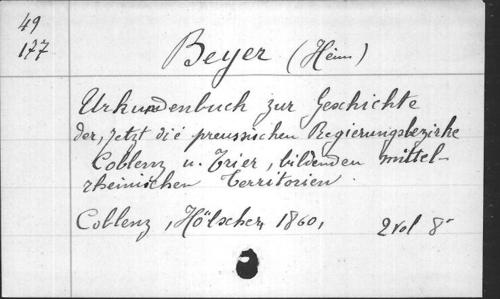 49
177
Beyer (Hein)
Urkundenbuch zur Geschichte
der, jetzt die preussischen Regierungsbezirke
Coblenz u. Trier, bildenden mittel-
rheinischen Territorien.
Coblenz, Hölscher, 1860, 2 vol 8°